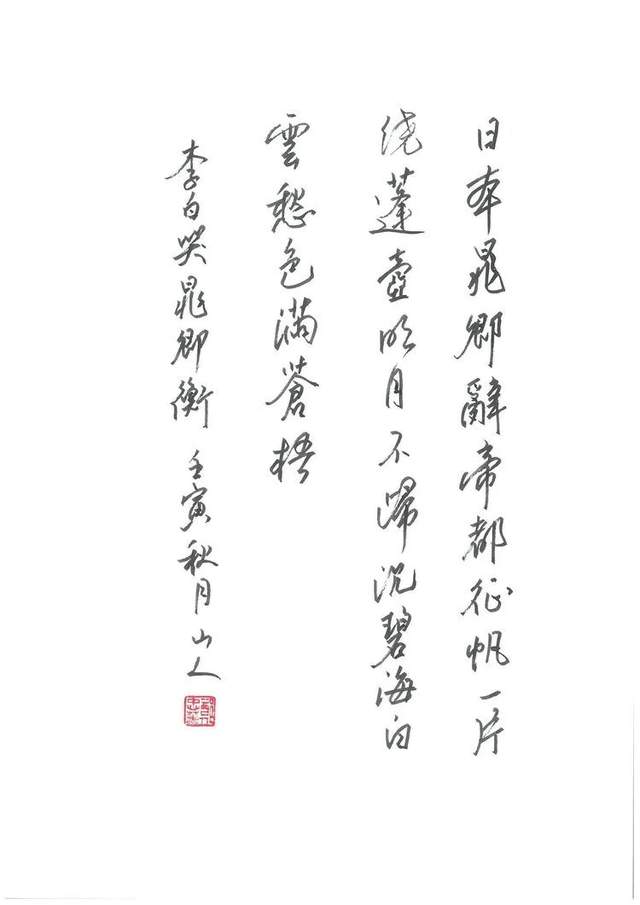 日本晁卿辭帝都征帆一片
绕蓬壺明月不歸沉碧海白
雲愁色滿蒼梧
李白哭晁卿衡 壬寅秋月 山人